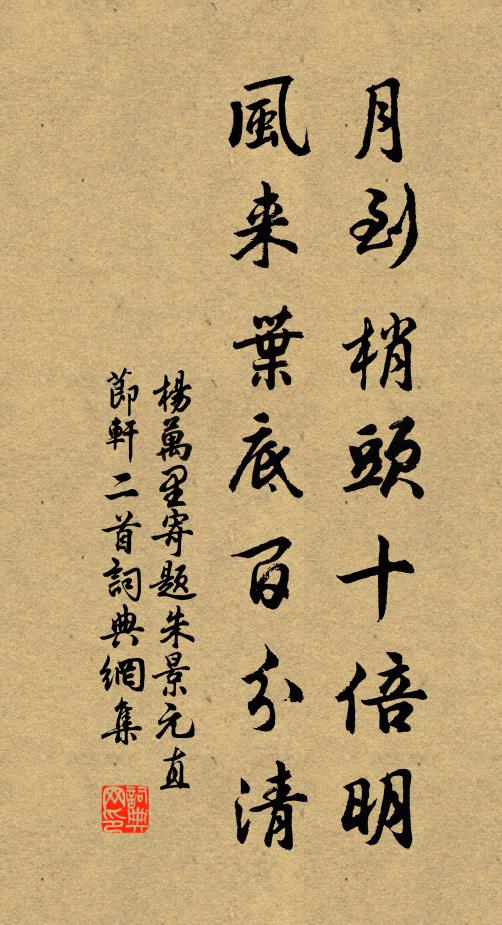 月到梢頭十倍明
風来葉底百分清
楊萬里寄題朱景元直
節軒二首詞典網集
詞典
网印